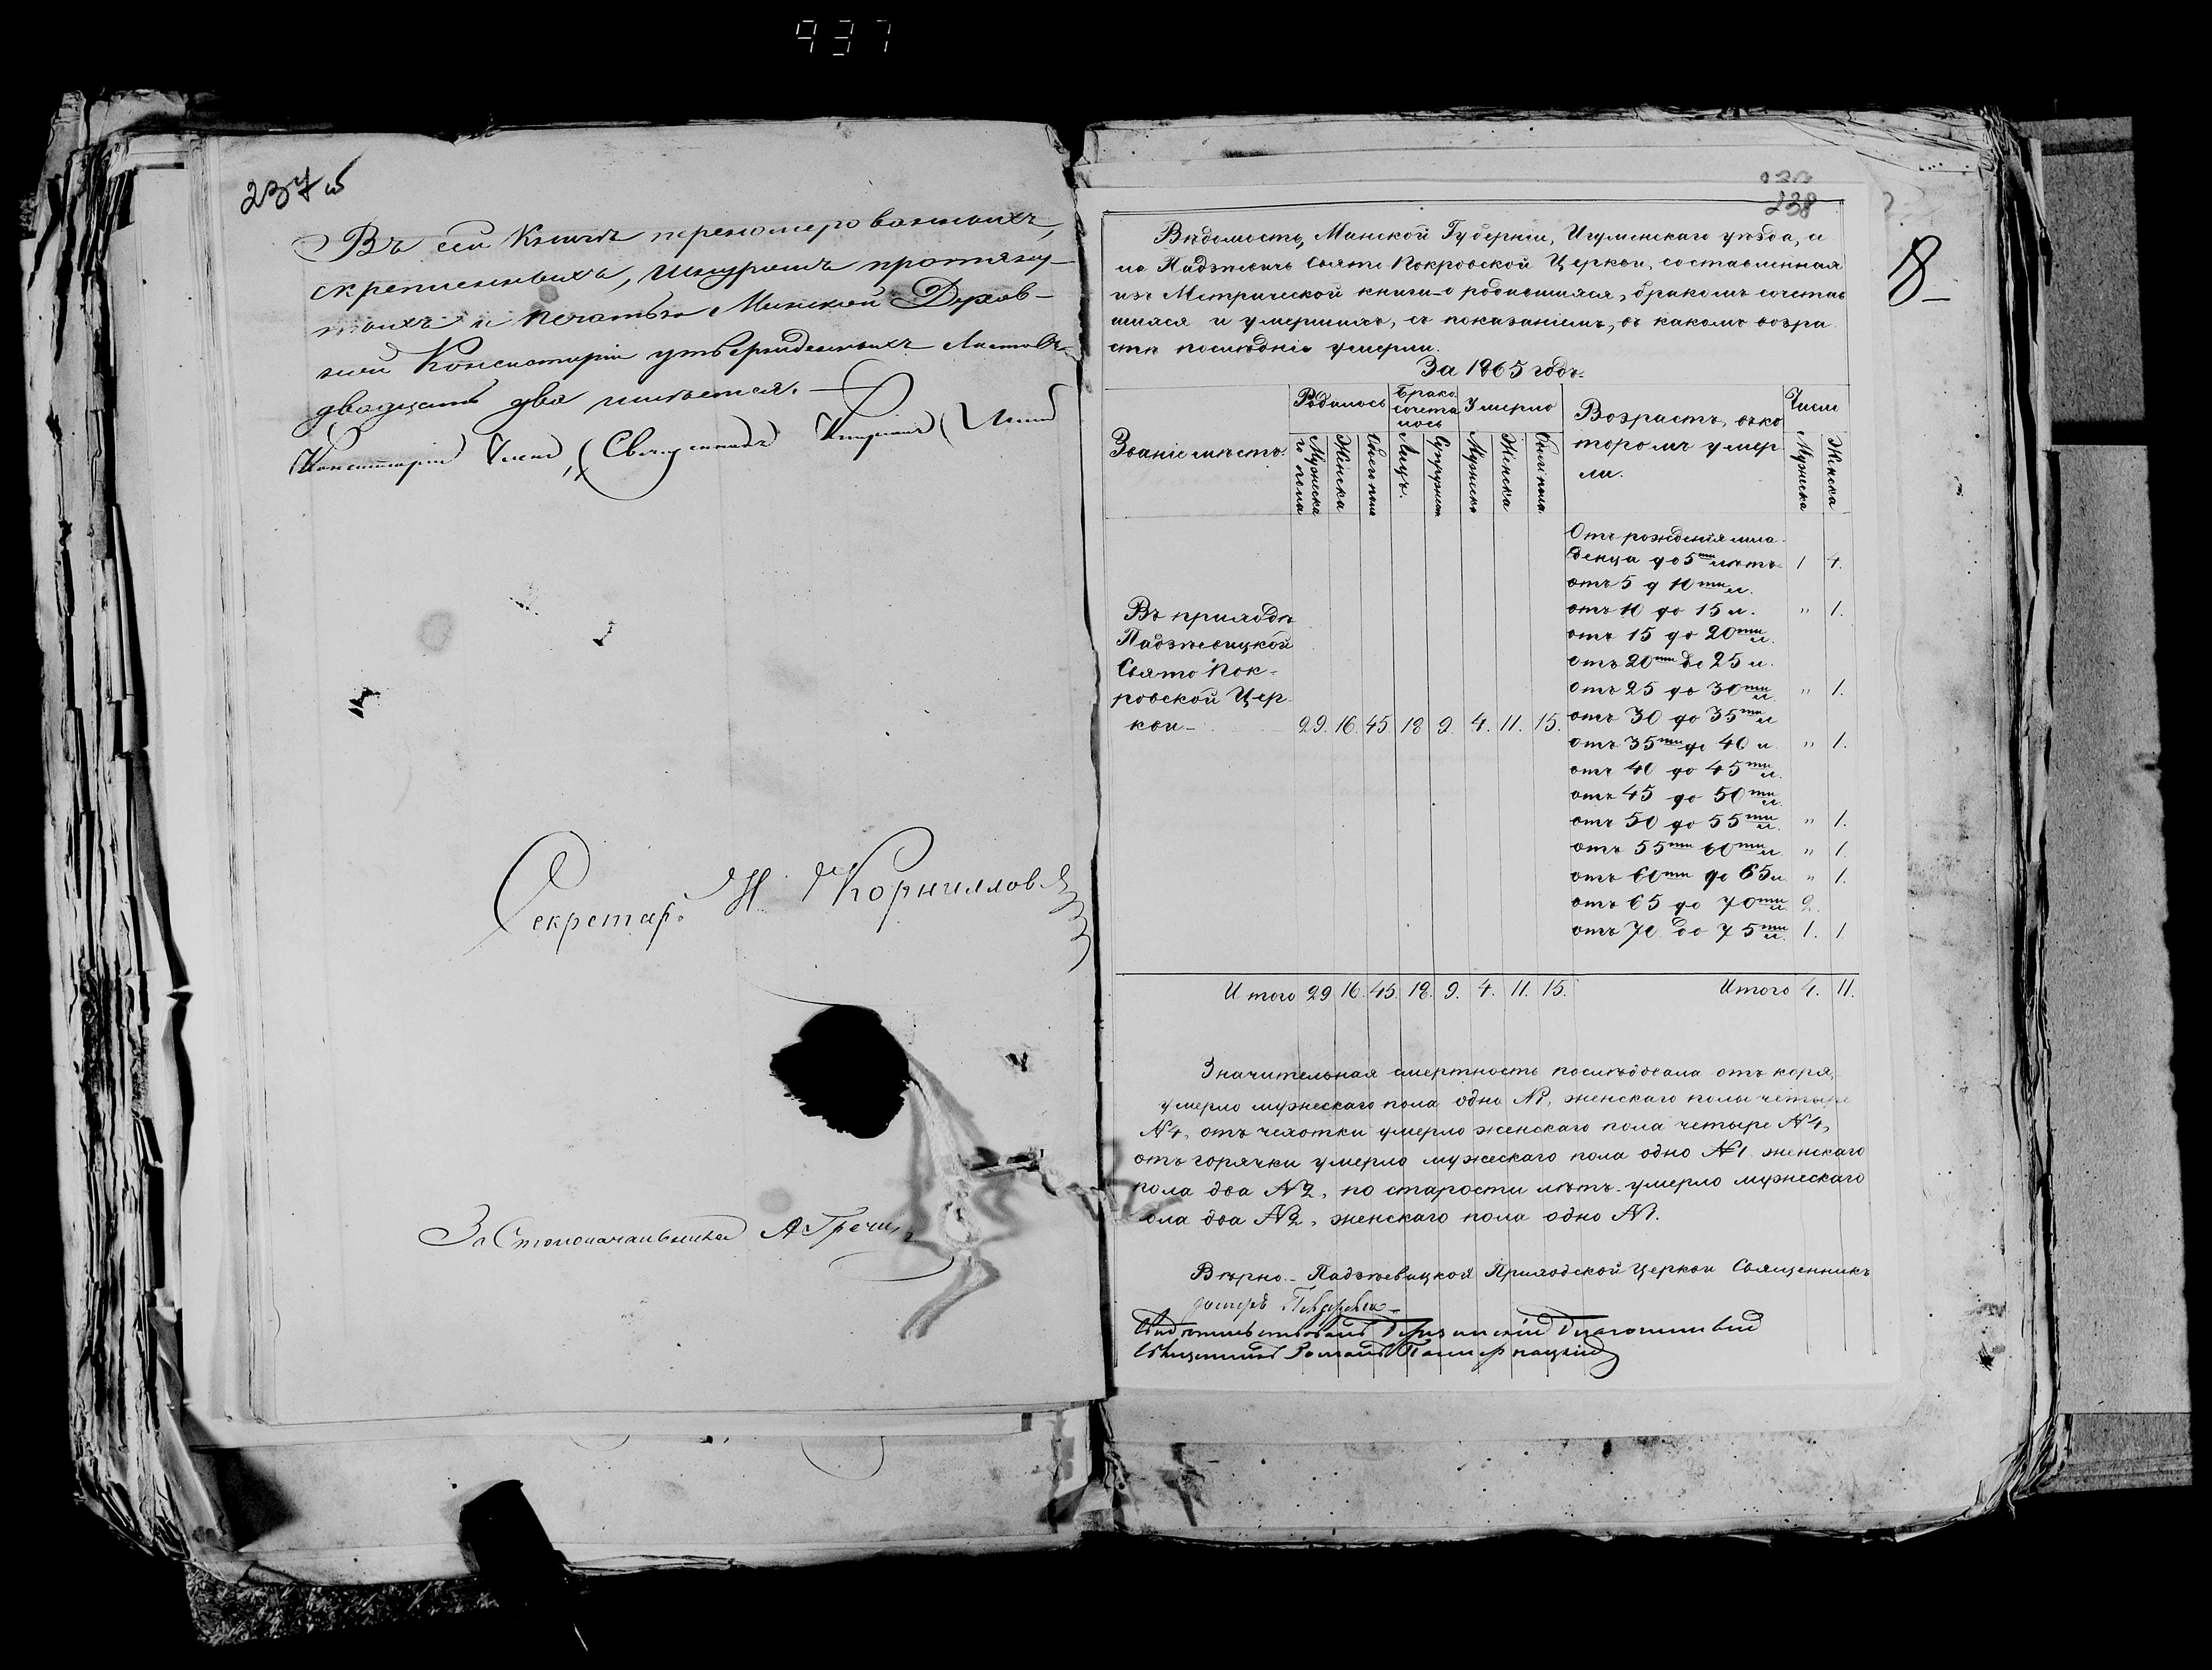 937
237 об
Въ сей Книгѣ перенумерованныхъ,
скрепленныхъ, шнуромъ протяну-
тыхъ и печатью Минской Духов-
ной Консисторіи утвержденныхъ листовъ
двадцать два имѣется.
Консисторіи Членъ, Священникъ
Секретарь Н Корниллов
За Столоначальника А Гречи
238
8
Вѣдомость, Минской Губерніи, Игуменскаго уѣзда, и
ла Падзѣевичъ Свято Покровской Церкви, составленная
изъ Метрической книги о родившихся, бракомъ сочетав
шихся и умершихъ, съ показаніемъ, въ какомъ возра
стѣ послѣдніе умерли.
За 1865 годъ.
Званіе мѣстъ. Родилось Брако сочета лось Умерло Возрастъ, въ ко торомъ умер ли. Число
Мужеска го пола Женска Обоего пола Лицъ. Супружест Мужеска Женска Обоего пола Мужеска Женска
Отъ рожденія мла
денца до 5ти лѣтъ 1 4.
отъ 5 д 10ти л.
отъ 10 до 15 л. " 1.
отъ 15 до 20ти л.
отъ 20ти до 25 л.
отъ 25 до 30ти л. " 1.
отъ 30 до 35ти л
отъ 35ти до 40 л. " 1.
отъ 40 до 45ти л.
отъ 45 до 50ти л.
отъ 50 до 55ти л. " 1.
отъ 55ти 60ти л. " 1.
отъ 60ти до 65 л " 1.
отъ 65 до 70ти л. 2.
отъ 70 до 75ти л. 1. 1
Въ приходѣ
Падзѣевицкой
Свято Пок-
ровской Цер
кви - 29. 16. 45. 18 9. 4. 11. 15.
Итого 29 16. 45. 18. 9. 4. 11. 15. Итого 4. 11.
Значительная смертность послѣдовала отъ коря,
умерло мужескаго пола одно №1, женскаго пола четыре
№4, отъ чехотки умерло женскаго пола четыре №4,
отъ горячки умерло мужескаго пола одно №1 женскаго
пола два №2, по старости лѣтъ умерло мужескаго
ола два №2, женскаго пола одно №1.
Вѣрно. - Падзѣевицкой Приходской Церкви Священникъ
Свидѣтельствовалъ Благочинный
Священникъ Романъ